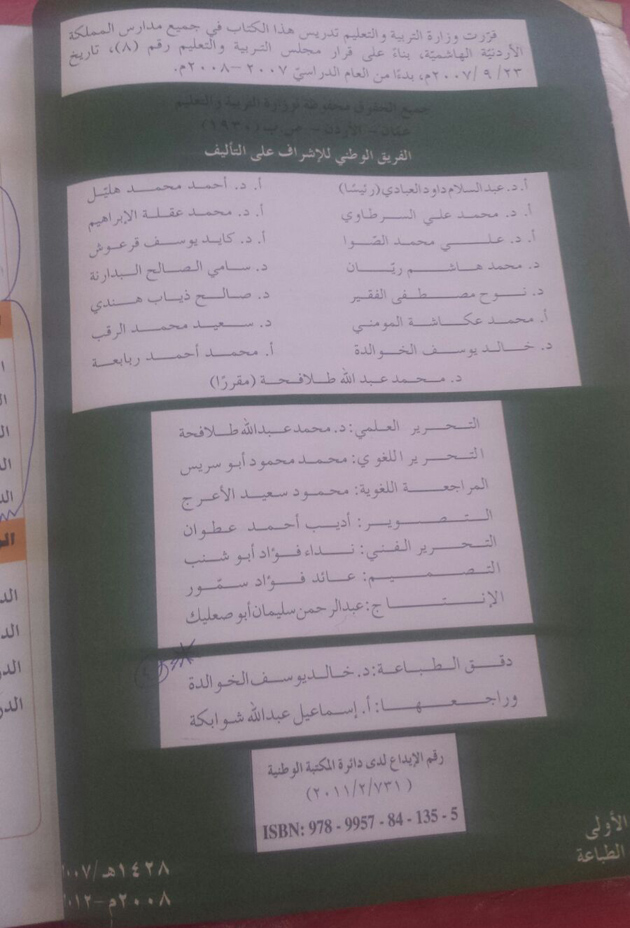 قرّرت وزارة التربية والتعليم تدريس هذا الكتاب في جميع مدارس المملكة
الأردنيّة الهاشميّة، بناءً على قرار مجلس التربية والتعليم رقم (٨)، تاريخ
٢٣/ ٩ /٢٠٠٧م، بدءًا من العام الدراسيّ ٢٠٠٧ – ٢٠٠٨م.
جميع الحقوق محفوظة لوزارة التربية والتعليم
عمّان – الأردن – ص.ب (١٩٣٠)
الفريق الوطني للإشراف على التأليف
أ.د. عبدالسلام داود العبادي (رئيسًا) أ. د. أحمد محمد هليّل
أ. د. محمد علي السرطاوي أ. د. محمد عقلة الإبراهيم
أ. د. علي محمد الصّوا أ. د. كايد يوسف قرعوش
د. محمد هاشم ريّان د. سامي الصالح البدارنة
د. نوح مصطفى الفقير د. صالح ذياب هندي
أ. محمد عكاشة المومني د. سعيد محمد الرقب
د. خالد يوسف الخوالدة أ. محمد أحمد ربابعة
د. محمد عبد الله طلافحة (مقررًا)
التحرير العلمي: د. محمد عبدالله طلافحة
التحرير اللغوي: محمد محمود أبو سريس
المراجعة اللغوية: محمود سعيد الأعرج
التصوير: أديب أحمد عطوان
التحرير الفني: نداء فؤاد أبو شنب
التصميم: عائد فؤاد سمّور
الإنتاج: عبدالرحمن سليمان أبو صعليك
دقق الطباعة: د. خالد يوسف الخوالدة
وراجعها: أ. إسماعيل عبدالله شوابكة
رقم الإيداع لدى دائرة المكتبة الوطنية
(٢٠١١/٢/٧٣١)
ISBN: 978 - 9957 - 84 - 135 - 5
الأولى
الطباعة
١٤٢٨هـ/
٢٠٠٨م–